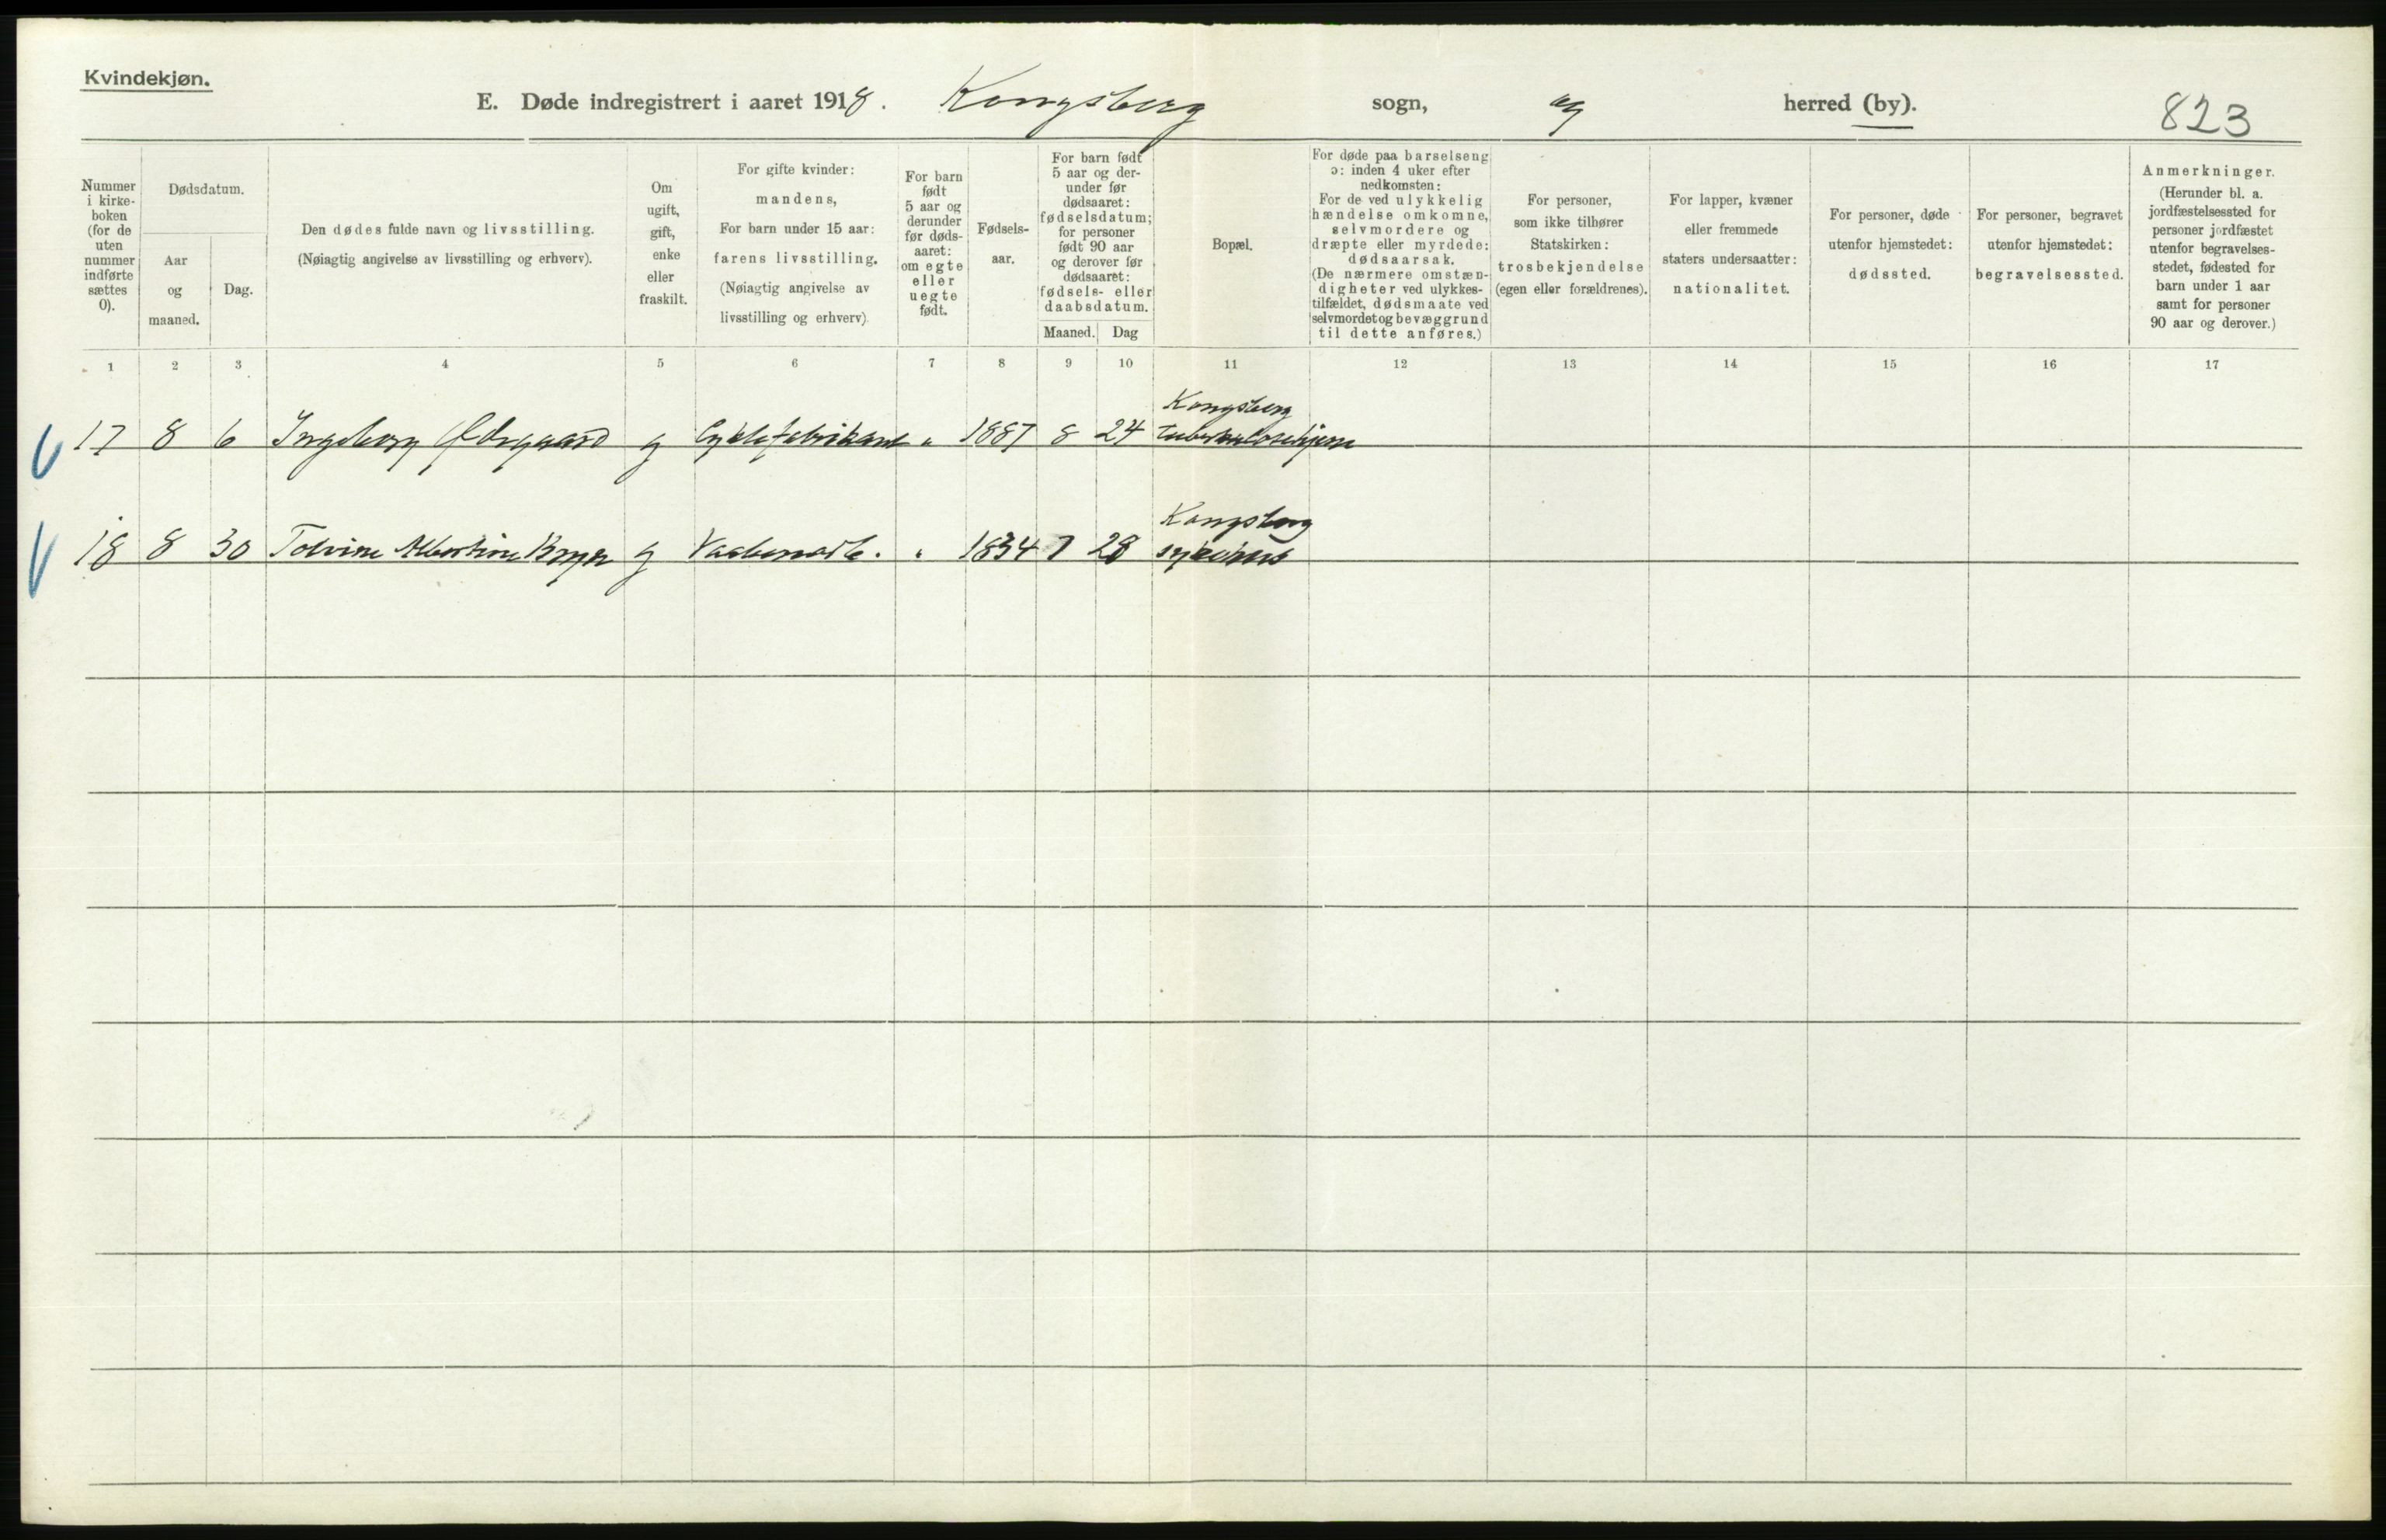 Kvindekjøn.
E. Døde indregistrert i aaret 1918. Kongsberg sogn, og herred (by). 823
Nummer i kirkeboken (for de uten nummer indførte sættes 0).
Dødsdatum.
Aar og maaned.
Dag.
Den dødes fulde navn og livsstilling.
(Nøiagtig angivelse av livsstilling og erhverv).
Om ugift, gift, enke eller fraskilt.
For gifte kvinder:
mandens,
For barn under 15 aar:
farens livsstilling.
(Nøiagtig angivelse av
livsstilling og erhverv)
For barn født 5 aar og derunder før dødsaaret: om egte eller uegte født.
Fødselsaar.
For barn født
5 aar og der-
under før
dødsaaret:
fødselsdatum;
for personer
født 90 aar
og derover før
dødsaaret:
fødsels- eller
daabsdatum.
Maaned. Dag
Bopæl.
For døde paa barselseng
ɔ: inden 4 uker efter
nedkomsten:
For de ved ulykkelig
hændelse omkomne,
selvmordere og
dræpte eller myrdede:
dødsaarsak.
(De nærmere omstæn-
digheter ved ulykkes-
tilfældet, dødsmaate ved
selvmordet og bevæggrund
til dette anføres.)
For personer,
som ikke tilhører
Statskirken:
trosbekjendelse
(egen eller forældrenes).
For lapper, kvæner
eller fremmede
staters undersaatter:
nationalitet.
For personer, døde
utenfor hjemstedet:
dødssted.
For personer, begravet
utenfor hjemstedet:
begravelsessted.
Anmerkninger.
(Herunder bl. a.
jordfæstelsessted for
personer jordfæstet
utenfor begravelses-
stedet, fødested for
barn under 1 aar
samt for personer
90 aar og derover.)
1 2 3 4 5 6 7 8 9 10 11 12 13 14 15 16 17
Kongsberg
17 8 6 Ingeborg Ødegaard g Cyklefabrikant " 1887 8 24 tuberkulosehjem
Kongsberg
18 8 30 Tolvine Albertine g " 1834 7 28 sykehus